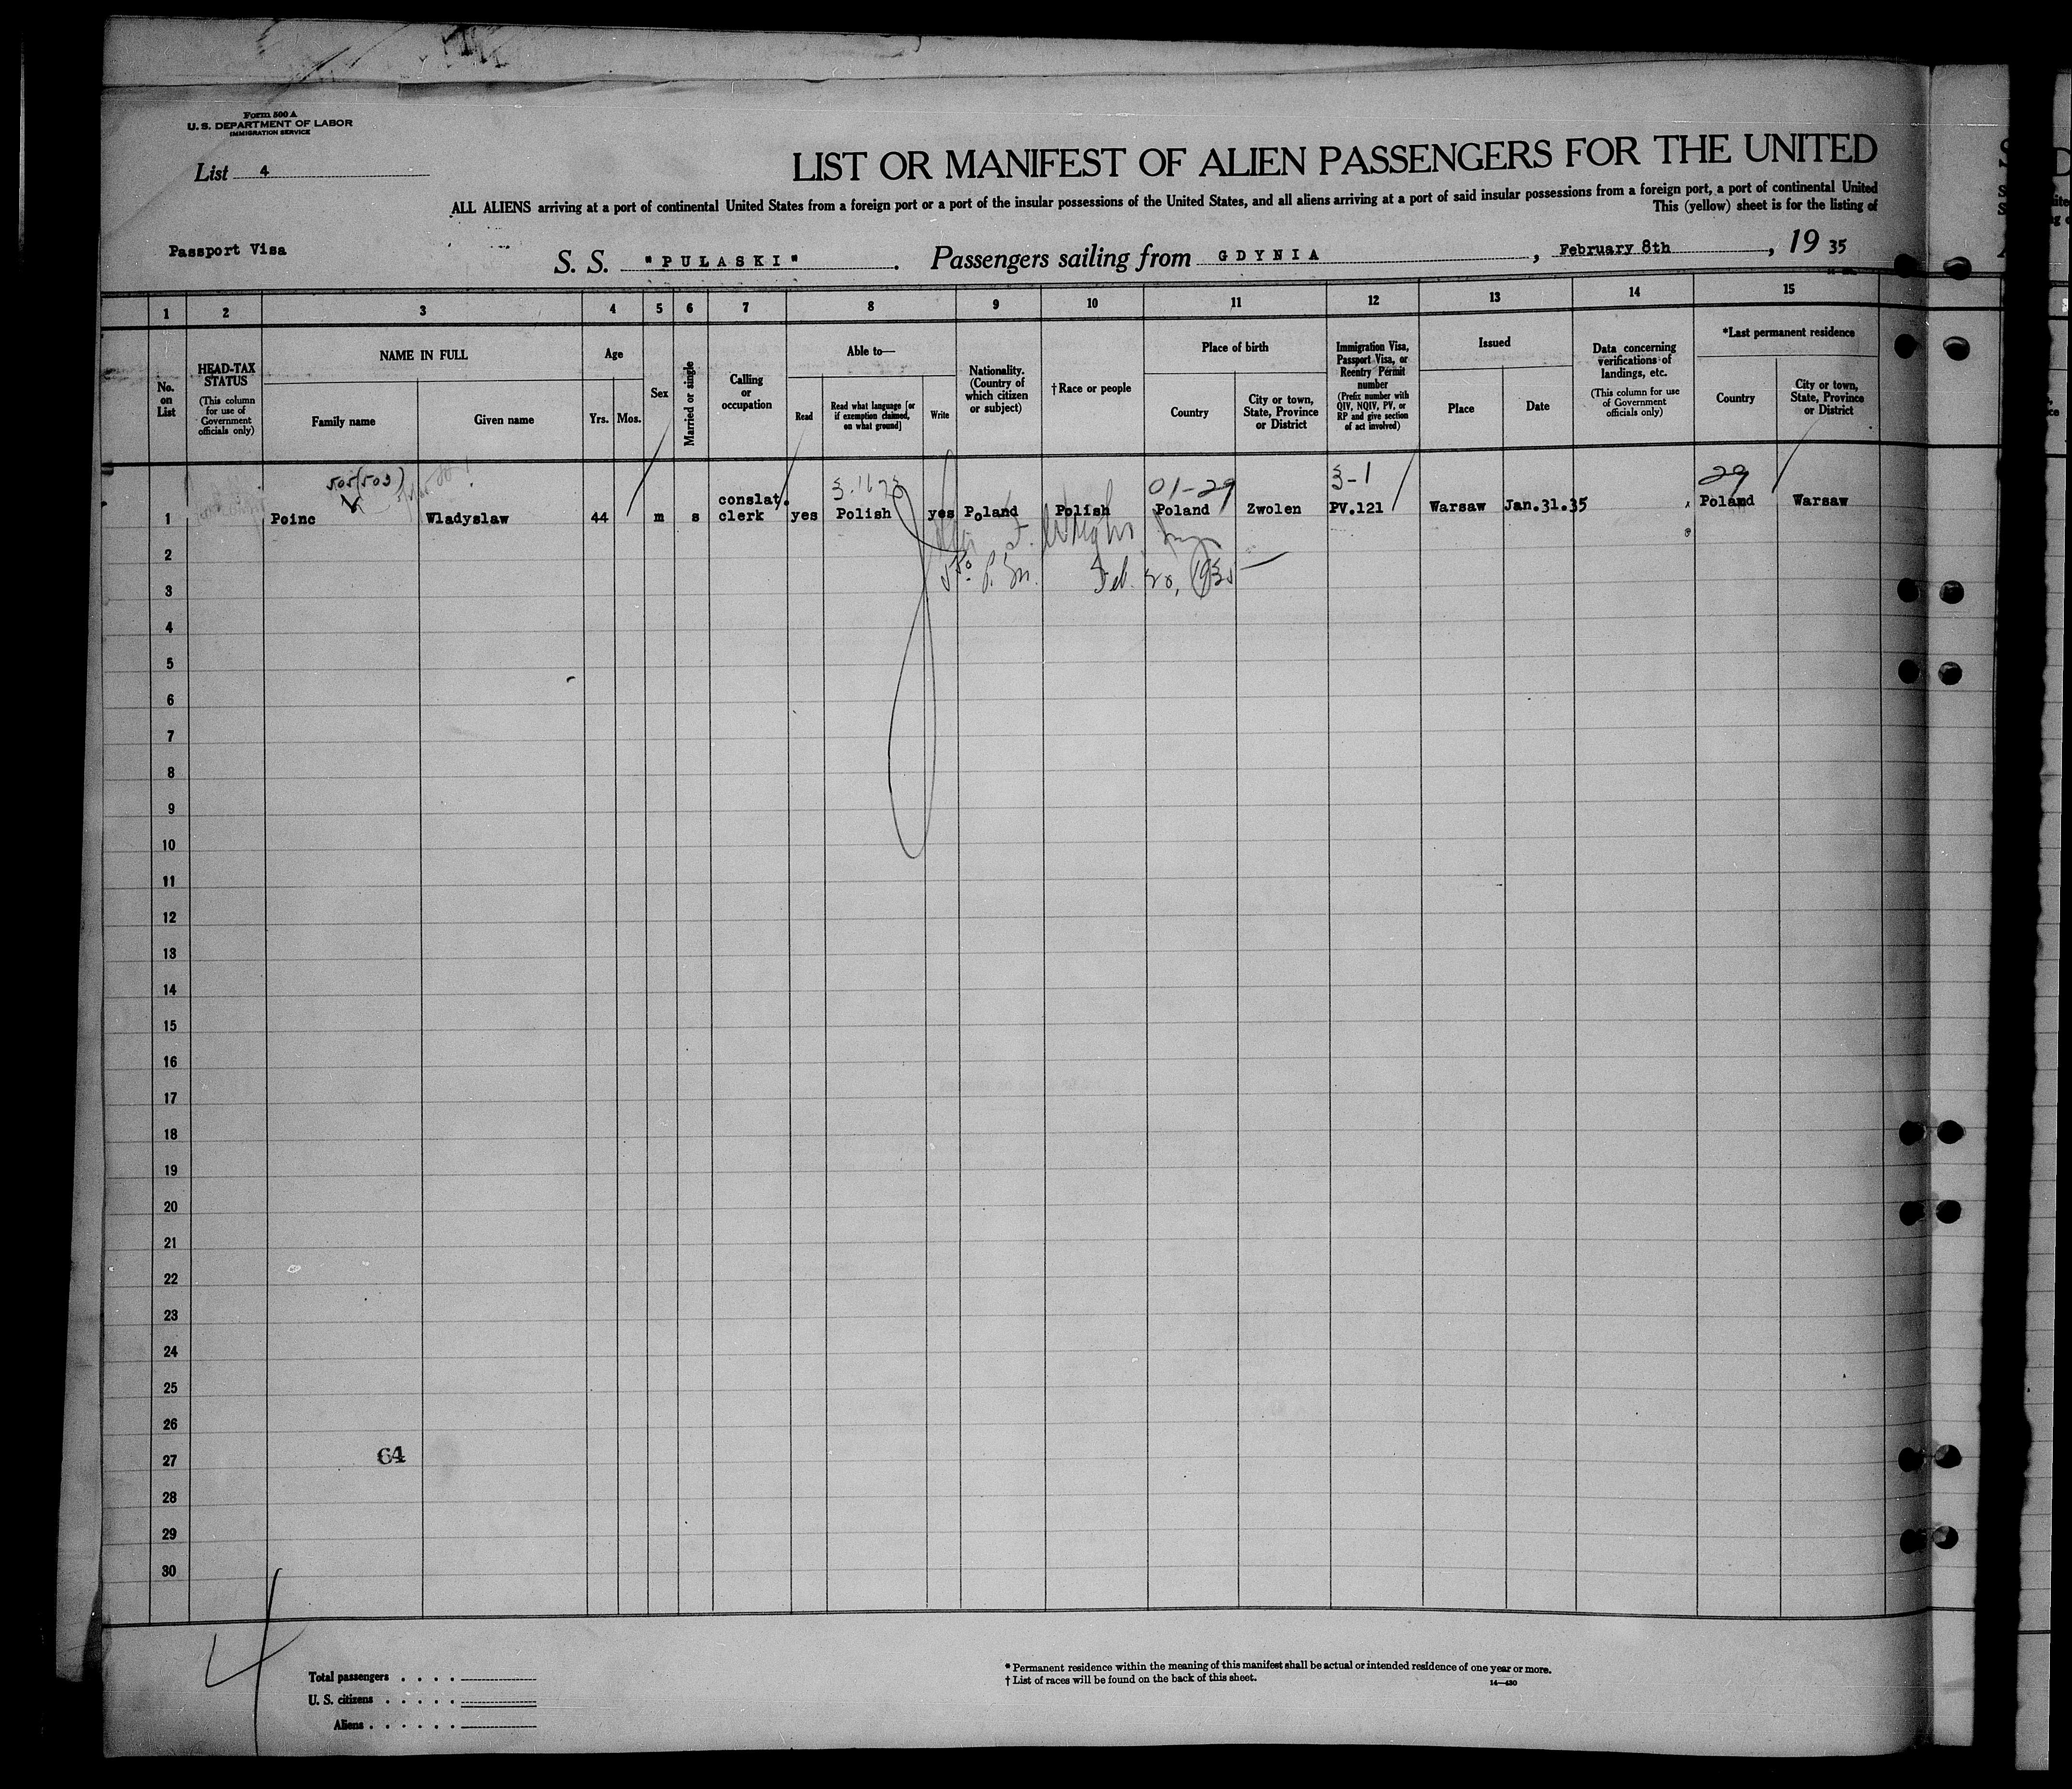 Form 500 A
U. S. DEPARTMENT OF LABOR
IMMIGRATION SERVICE
List 4
LIST OR MANIFEST OF ALIEN PASSENGERS FOR THE UNITED
ALL ALIENS arriving at a port of continental United States from a foreign port or a port of the insular possessions of the United States, and all aliens arriving at a port of said insular possessions from a foreign port, a port of continental United
This (yellow) sheet is for the listing of
Passport Visa
S. S. "PULASKI". Passengers sailing from GDYNIA, February 8th, 19 35
1 2 3 4 5 6 7 8 9 10 11 12 13 14 15
No. on List
HEAD-TAX STATUS
(This column for use of Government officials only)
NAME IN FULL
Family name
Given name
Age
Yrs.
Mos.
Sex
Married or single
Calling or occupation
Able to—
Read
Read what language [or if exemption claimed, on what ground]
Write
Nationality. (Country of which citizen or subject)
†Race or people
Place of birth
Country
City or town, State, Province or District
Immigration Visa, Passport Visa, or Reentry Permit number
(Prefix number with QIV, NQIV, PV, or RP and give section of act involved)
Issued
Place
Date
Data concerning verifications of landings, etc.
(This column for use of Government officials only)
*Last permanent residence
Country
City or town, State, Province or District
505(503) 01-29 3-1 29
1 Poinc Wladyslaw 44 m s conslat. clerk yes Polish yes Poland Polish Poland Zwolen PV.121 Warsaw Jan.31.35 Poland Warsaw
2
Feb. 20, 1935
3
4
5
6
7
8
9
10
11
12
13
14
15
16
17
18
19
20
21
22
23
24
25
26
27 64
28
29
30
4
Total passengers . . . .
U. S. citizens . . . . .
Aliens . . . . . .
* Permanent residence within the meaning of this manifest shall be actual or intended residence of one year or more.
† List of races will be found on the back of this sheet.
14—430